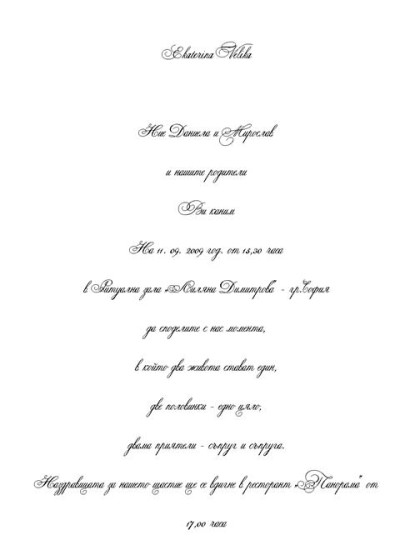 Ekaterina Velika
Ние Даниела и Мирослав
и нашите родители
Ви каним
На 11. 09. 2009 год. от 15,30 часа
в Ритуална зала „Лиляна Димитрова“ - гр. София
да споделите с нас момента,
в който два живота стават един,
две половинки - едно цяло,
двама приятели - съпруг и съпруга.
Наздравицата за нашето щастие ще се вдигне в ресторант „Панорама“ от
17,00 часа